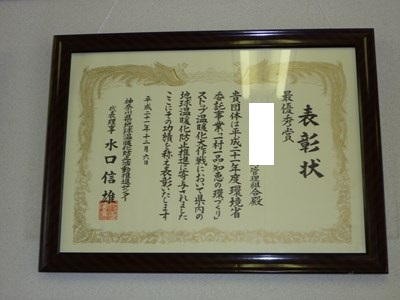 表彰状
最優秀賞
管理組合殿
貴団体は平成二十一年度環境省
委託事業「一村一品知恵の環づくり」
ストップ温暖化大作戦において県内の
地球温暖化防止推進に寄与されました
ここにその功績を称え表彰いたします
平成二十一年十二月六日
神奈川県地球温暖化防止活動推進センター
代表理事 水口信雄